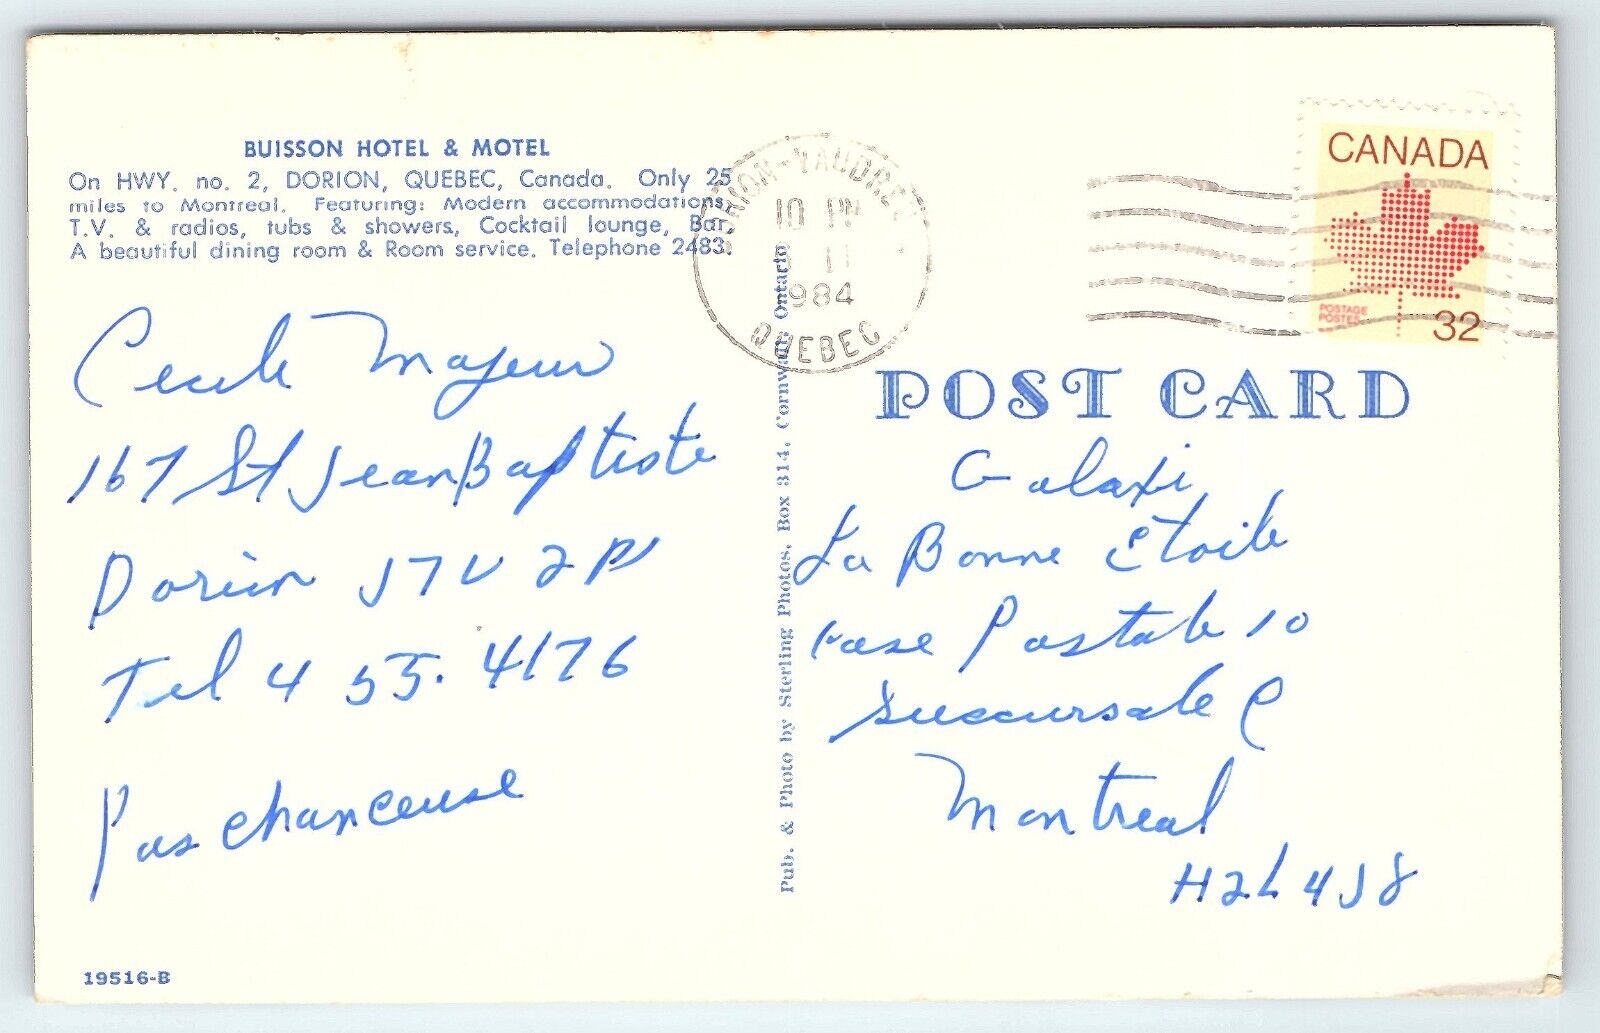 BUISSON HOTEL & MOTEL
On HWY. no. 2, DORION, QUEBEC, Canada. Only 25
miles to Montreal. Featuring: Modern accommodations,
T.V. & radios, tubs & showers, Cocktail lounge, Bar,
A beautiful dining room & Room service. Telephone 2483.
Cecile Majeur
167 St Jean Baptiste
Dorion J7V 2P1
Tel 455.4176
Pas chanceuse
19516-B
Pub. & Photo by Sterling Photos, Box 314, Cornwall, Ontario
RION-VAUDREU
10 PM
11
1984
QUEBEC
CANADA
POSTAGE
POSTES
32
POST CARD
Galaxi
La Bonne Etoile
Case Postale 10
Succursale C
Montreal
H2L 4J8